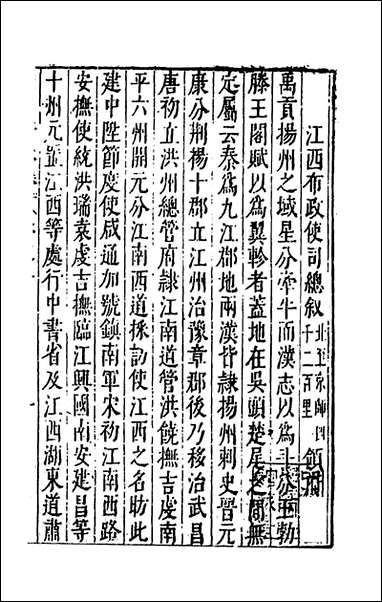 江西布政使司總叙
北至京師四
千二百里
禹貢揚州之域星分牽牛而漢志以為斗
王勃
滕王閣賦以為翼軫者蓋地在吳頭楚尾之間無
定屬云秦為九江郡地兩漢皆隸揚州刺史晉元
康分荆揚十郡立江州治豫章郡後乃移治武昌
唐初立洪州總管府隷江南道管洪饒撫吉虔南
平六州開元分江南西道採訪使江西之名昉此
建中陞節度使咸通加號鎮南軍宋初江南西路
安撫使統洪瑞袁虔吉撫臨江興國南安建昌等
十州元置江西等處行中書省及江西湖東道肅